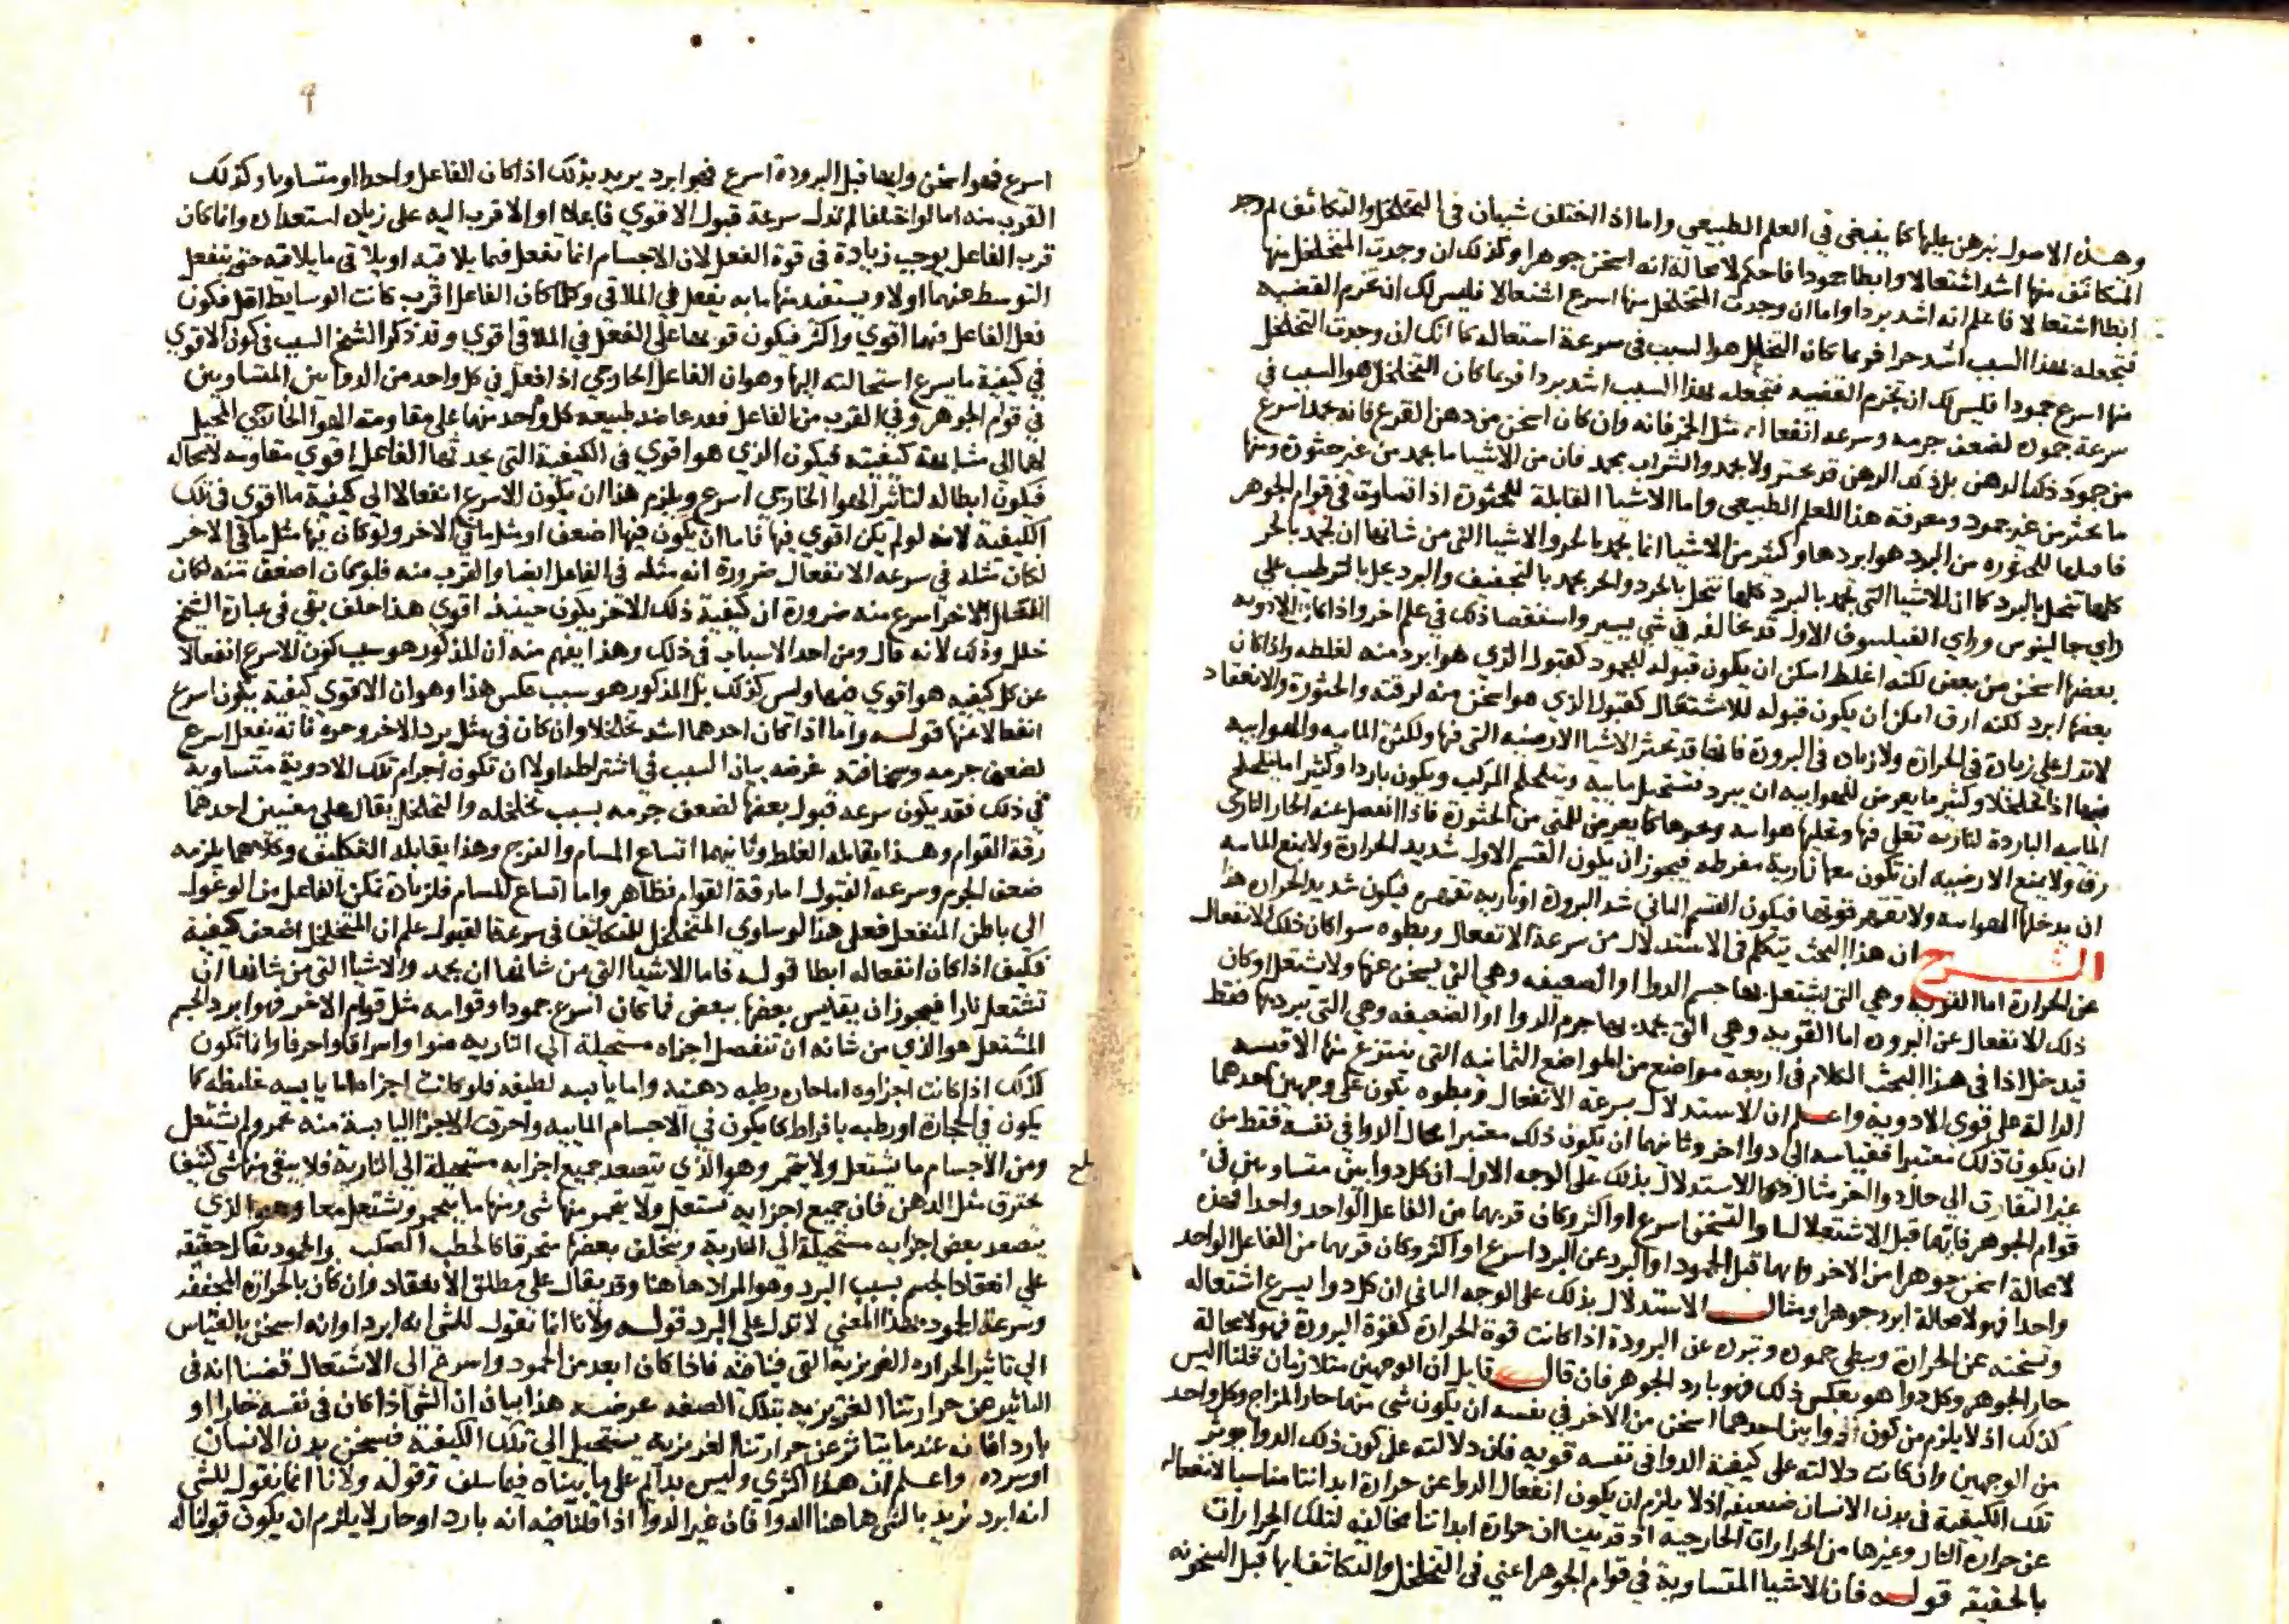 وهذه الاصول يبرهن عليها كما ينبغي في العلم الطبيعي واما اذا اختلف شيئان في التخلخل والتكاثف ثم وجد
المتكاثف منها اشد اشتعالا وابطا جمودا فاحكم لا محالة انه اسخن جوهرا وكذلك ان وجدت المتخلخل منها
ابطا اشتعالا فاعلم انه اشد بردا واما ان وجدت المتخلخل منها اسرع اشتعالا فليس لك ان تجزم القضيه
فتجعله بهذا السبب اشد حرا فربما كان التخلخل هو السبب في سرعة اشتعاله كما انك ان وجدت المتخلخل
منها اسرع جمودا فليس لك ان تجزم القضيه فتجعله بهذا السبب اشد بردا فربما كان التخلخل هو السبب في
سرعة جموده لضعف جرمه وسرعه انفعاله مثل الخمر فانه وان كان اسخن من دهن القرع فانه يجمد اسرع
من جمود ذلك الدهن بل ذلك الدهن قد يخثر ولا يجمد والشراب يجمد فان من الاشيا ما يجمد من غير خثورة ومنها
ما يخثر من غير جمود ومعرفة هذا للعلم الطبيعي واما الاشيا القابلة للخثورة اذا تساوت في قوام الجوهر
فاقبلها للخثوره من البرد هو ابردها وكثير من الاشيا انما يجمد بالحر والاشيا التي من شانها ان تجمد بالحر
كلها تنحل بالبرد كما ان الاشيا التي تجمد بالبرد كلها تنحل بالحر والحر يجمد بالتجفيف والبرد يحل بالترطيب على
راي جالينوس وراي الفيلسوف الاول قد يخالفه في شي يسير واستقصا ذلك في علم اخر واذا كان الادويه
بعضها اسخن من بعض لكنه اغلظ امكن ان يكون قبوله للجمود كقبول الذي هو ابرد منه لغلظه واذا كان
بعضها ابرد لكنه ارق امكن ان يكون قبوله للاشتعال كقبول الذي هو اسخن منه لرقته والخثورة والانعقاد
لا تدل على زيادة في الحرارة ولا زيادة في البرودة فانها قد تخثر الاشيا الارضيه التي فيها ولكثرة المائيه والهوايية
فيها اذا تخلخلا وكثير ما يعرض للهوايية ان يبرد فتستحيل مايية ويتخلخل المركب ويكون باردا وكثيرا ما يتخلخل
المائيه الباردة لنارية تغلي فيها وتحيلها هوايه وتخرجها كما يعرض للمني من الخثورة فاذا انفصل عنه الحار الناري
رق ولا يمنع الارضيه ان تكون معها نارية مفرطه فيجوز ان يكون القسم الاول شديد الحرارة ولا يمنع المائيه
ان يدخلها الهواييه ولا تقهر قوتها فيكون القسم الثاني شد البرودة او ناريه تقهر فيكون شديد الحراره هذا
الشرح ان هذا البحث يتكلم في الاستدلال من سرعة الانفعال وبطوه سوا كان ذلك الانفعال
عن الحرارة اما القويه وهي التي يشتعل بها جسم الدوا او الضعيفه وهي التي يسخن عنها ولا يشتعل او كان
ذلك الانفعال عن البروده اما القويه وهي التي يجمد بها جرم الدوا او الضعيفه وهي التي يبرد بها فقط
فيدخل اذا في هذا البحث الكلام في اربعه مواضع من المواضع الثمانيه التي ينتزع منها الاقيسه
الدالة على قوى الادويه واعلم ان الاستدلال بسرعة الانفعال وبطوه تكون على وجهين احدهما
ان يكون ذلك معتبرا فقياسه الى دوا اخر وثانيهما ان يكون ذلك معتبرا بحال الدوا في نفسه فقط من
غير التفات الى حال دوا اخر مثال الاستدلال بذلك على الوجه الاول ان كل دوايين متساويين في
قوام الجوهر فايهما قبل الاشتعال او التسخن اسرع او اكثر وكان قربهما من الفاعل الواحد واحدا فهذه
لا محالة اسخن جوهرا من الاخر وايهما قبل الجمود او البرد عن البرد اسرع او اكثر وكان قربهما من الفاعل الواحد
واحدا فهو لا محالة ابرد جوهرا ومثال الاستدلال بذلك على الوجه الثاني ان كل دوا يسرع اشتعاله
وتسخنه عن الحرارة ويبطي جموده وتبرده عن البرودة اذا كانت قوة الحرارة كقوة البرودة فهو لا محالة
حار الجوهر وكل دوا هو بعكس ذلك فهو بارد الجوهر فان قال قايل ان الوجهين متلازمان قلنا ليس
كذلك اذ لا يلزم من كون الدوايين احدهما اسخن من الاخر في نفسه ان يكون شي منهما حار المزاج وكل واحد
من الوجهين وان كانت دلالته على كيفية الدوا في نفسه قويه فان دلالته على كون ذلك الدوا يوثر
تلك الكيفية في بدن الانسان ضعيفه اذ لا يلزم ان يكون انفعال الدوا عن حرارة ابداننا مناسبا لانفعاله
عن حرارة النار وغيرها من الحرارات الخارجيه اذ قد بينا ان حرارة ابداننا مخالفه لتلك الحرارات
بالحقيقه قوله فان الاشيا المتساوية في قوام الجوهر اعني في التخلخل والتكاثف ايها قبل السخونه
اسرع فهو اسخن وايها قبل البرودة اسرع فهو ابرد يريد بذلك اذا كان الفاعل واحدا او متساويا وكذلك
القرب منه اما لو اختلفا لم تدل سرعة قبول الاقوي فاعلا او الاقرب اليه على زيادة استعداده وانما كان
قرب الفاعل يوجب زيادة في قوة الفعل لان الاجسام انما تفعل فيما يلاقيه او يلاقي ما يلاقيه حتى ينفعل
المتوسط عنهما اولا ويستفيد منها ما به يفعل في الملاقي وكلما كان الفاعل اقرب كانت الوسايط اقل فيكون
فعل الفاعل فيهما اقوي واكثر فيكون قوتها على الفعل في الملاقي اقوي وقد ذكر الشيخ السبب في كون الاقوي
في كيفية ما يسرع استحالته اليها وهو ان الفاعل الخارجي اذا فعل في كل واحد من الدوايين المتساويين
في قوام الجوهر وفي القرب من الفاعل فعد عاضد طبيعه كل واحد منهما على مقاومته الهوا الخارجي المحيل
لهما الى مشابهة كيفيته فيكون الذي هو اقوي في الكيفية التي يحدثها الفاعل اقوي مقاومه لا محاله
فيكون ابطا له لتاثير الهوا الخارجي اسرع ويلزم هذا ان يكون الاسرع انفعالا الى كيفية ما اقوي في تلك
الكيفية لانه لو لم يكن اقوي فيها فاما ان يكون فيها اضعف او مثل ما في الاخر ولو كان فيها مثل ما في الاخر
لكان مثله في سرعه الانفعال ضرورة انه مثله في الفاعل ايضا والقرب منه فلو كان اضعف منه لكان
انفعال الاخر اسرع منه ضرورة ان كيفية ذلك الاخر يكون حينئذ اقوي هذا خلف بقي في عبارة الشيخ
خلل وذلك لانه قال ومن احد الاسباب في ذلك وهذا يفهم منه ان المذكور هو سبب كون الاسرع انفعالا
عن كل كيفيه هو اقوي فيها وليس كذلك بل المذكور هو سبب عكس هذا وهو ان الاقوي كيفية يكون اسرع
انفعالا عنها قوله واما اذا كان احدهما اشد تخلخلا وان كان في مثل برد الاخر وحره فانه ينفعل اسرع
لضعف جرمه وسخافته غرضه بيان السبب في اشتراطه اولا ان تكون اجرام تلك الادوية متساوية
في ذلك فقد يكون سرعه قبول بعضها لضعف جرمه بسبب تخلخله والتخلخل يقال على معنيين احدهما
رقة القوام وهذا يقابله الغلظ وثانيهما اتساع المسام والفرج وهذا يقابله التكاثف وكلاهما يلزمه
ضعف الجرم وسرعه القبول اما رقة القوام فظاهر واما اتساع المسام فلزيادة تمكن الفاعل من الوغول
الى باطن المنفعل فعلى هذا لو ساوي المتخلخل للمتكاثف في سرعة القبول علم ان المتخلخل اضعف كيفية
فكيف اذا كان انفعاله ابطا قوله فاما الاشيا التي من شانها ان يجمد والاشيا التي من شانها ان
تشتعل نارا فيجوز ان يقايس بعضها ببعض فما كان اسرع جمودا وقوامه مثل قوام الاخر فهو ابرد الجسم
المشتعل هو الذي من شانه ان تنفصل اجزاه مستحيلة الى الناريه ضوا واشراقا واحراقا وانما تكون
كذلك اذا كانت اجزاوه اما حاره رطبه دهنيه واما يابسه لطيفه فلو كانت اجزا اما يابسه غليظه كما
يكون في الحجارة او رطبه بافراط كما يكون في الاجسام المائيه واحرقت الاجزا اليابسة منه تجمر ولم يشتعل
ومن الاجسام ما يشتعل ولا يتجمر وهو الذي يتصعد جميع اجزايه مستحيلة الى النارية فلا يبقى منها شي كثيفا
يحترق مثل الدهن فان جميع اجزايه تشتعل ولا يتجمر منها شي ومنها ما يتجمر ويشتعل معا وهو الذي
يتصعد بعض اجزايه مستحيلة الى النارية ويتخلف بعضها متحرقا كالحطب الصلب والجمود يقال حقيقه
على انعقاد الجسم بسبب البرد وهو المراد هاهنا وقد يقال على مطلق الانعقاد وان كان بالحرارة المجففه
وسرعة الجمود بهذا المعنى لا تدل على البرد قوله ولانا انما نقول للشي انه ابرد او انه اسخن بالقياس
الى تاثير الحراره الغريزية التي فينا فيه فاذا كان ابعد من الجمود واسرع الى الاشتعال قضينا انه في
التاثير عن حرارتنا الغريزيه بتلك الصفه غرضه هذا بيان ان الشي اذا كان في نفسه حارا او
باردا فانه عندما يتاثر عن حرارتنا الغريزيه يستحيل الى تلك الكيفية فيسخن بدن الانسان
او يبرده واعلم ان هذا اكثري وليس بدايم على ما بيناه فيما سلف وقوله ولانا انما نقول للشي
انه ابرد نريد بالشي هاهنا الدوا فان غير الدوا اذا قلنا فيه انه بارد او حار لا يلزم ان يكون قولنا له